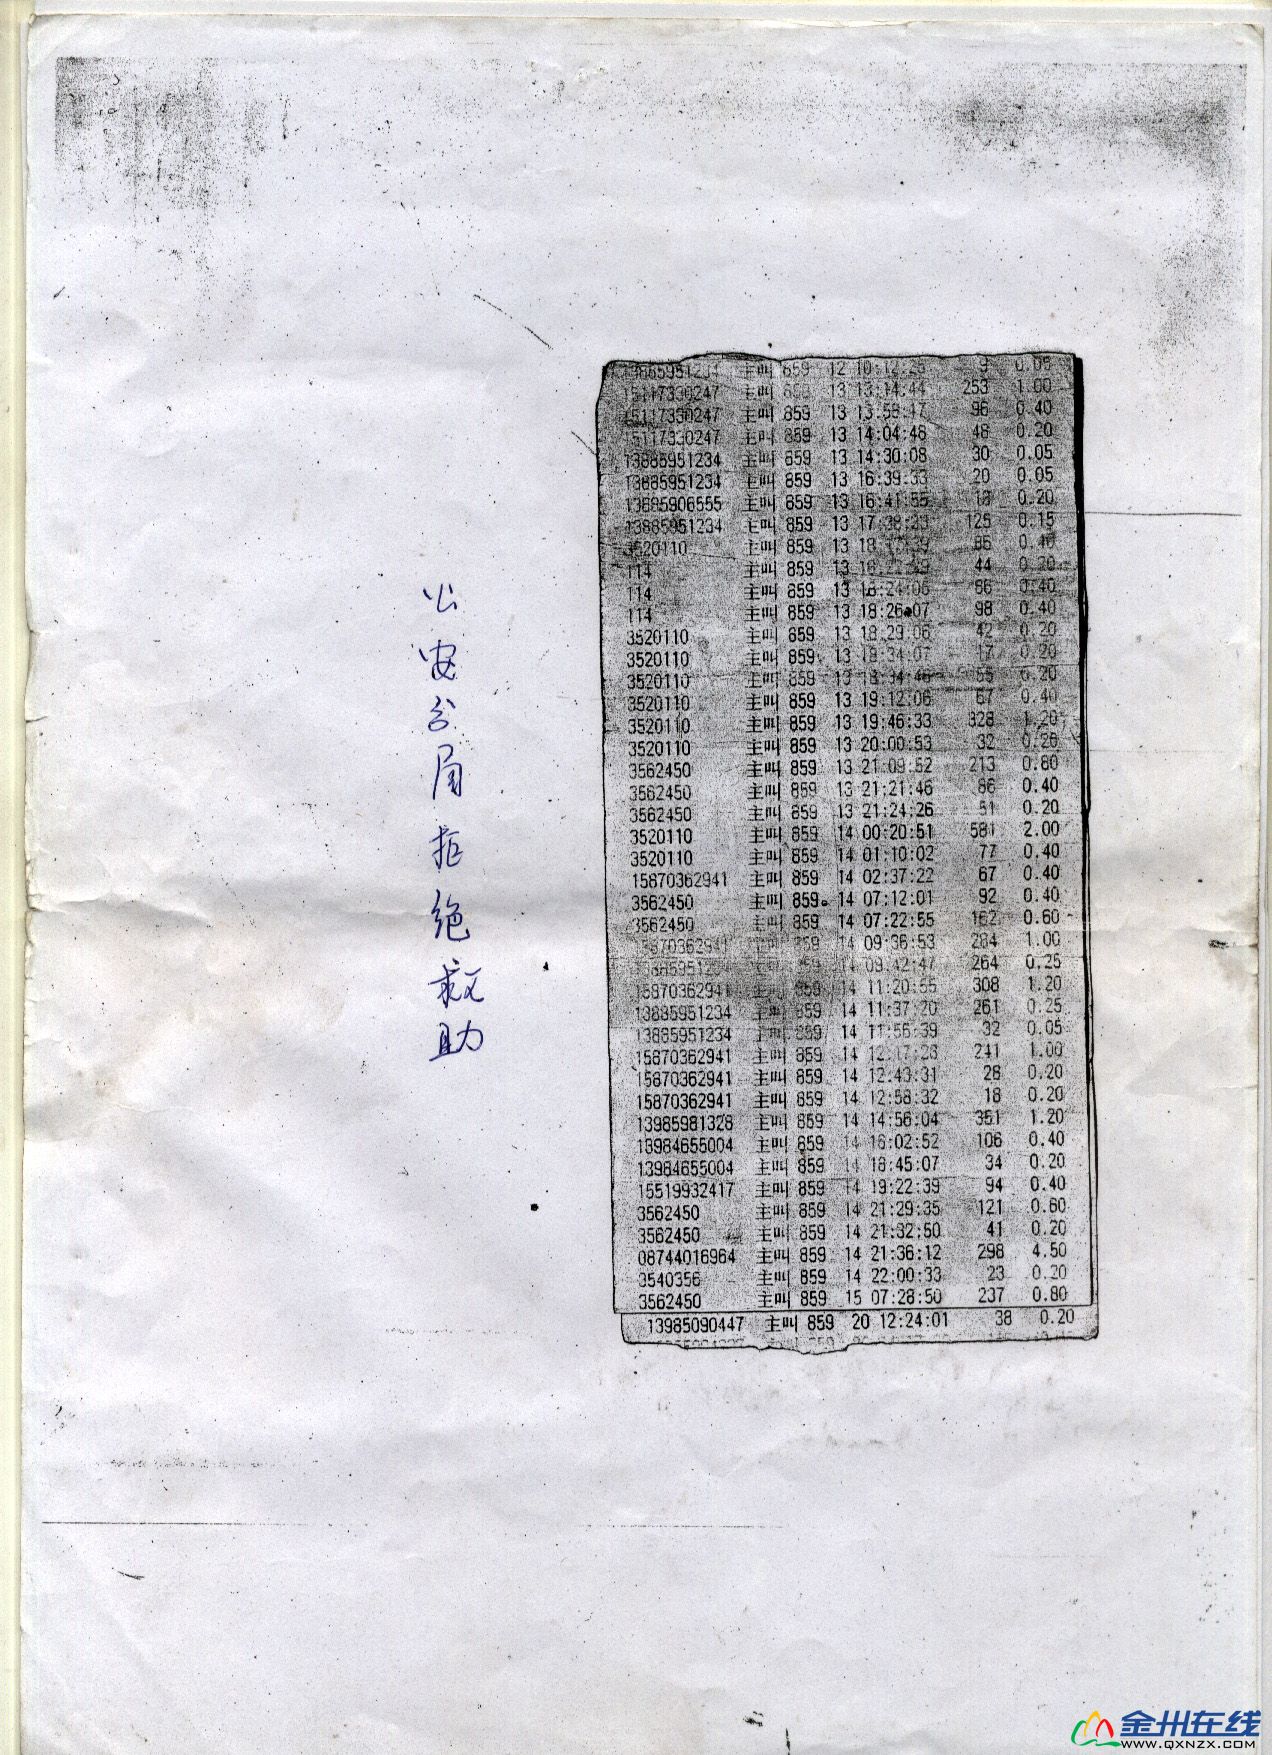 公安分局拒绝救助
13885951234 主叫 859 12 10:12:26 9 0.05
15117330247 主叫 859 13 13:14:44 253 1.00
15117330247 主叫 859 13 13:58:47 96 0.40
15117330247 主叫 859 13 14:04:46 48 0.20
13885951234 主叫 859 13 14:30:08 30 0.05
13885951234 主叫 859 13 16:39:33 20 0.05
13885906555 主叫 859 13 16:41:55 18 0.20
13885951234 主叫 859 13 17:38:23 125 0.15
3520110 主叫 859 13 86 0.40
114 主叫 859 13 44 0.20
114 主叫 859 13 18:24:06 66 0.40
114 主叫 859 13 18:26:07 98 0.40
3520110 主叫 859 13 18:29:06 42 0.20
3520110 主叫 859 13 18:34:07 17 0.20
3520110 主叫 859 13 18:34:46 55 0.20
3520110 主叫 859 13 19:12:06 67 0.40
3520110 主叫 859 13 19:46:33 328 1.20
3520110 主叫 859 13 20:00:53 32 0.20
3562450 主叫 859 13 21:09:52 213 0.80
3562450 主叫 859 13 21:21:46 86 0.40
3562450 主叫 859 13 21:24:26 51 0.20
3520110 主叫 859 14 00:20:51 581 2.00
3520110 主叫 859 14 01:10:02 77 0.40
15870362941 主叫 859 14 02:37:22 67 0.40
3562450 主叫 859 14 07:12:01 92 0.40
3562450 主叫 859 14 07:22:55 162 0.60
15870362941 主叫 859 14 09:36:53 284 1.00
13885951234 主叫 859 14 09:42:47 264 0.25
15870362941 主叫 859 14 11:20:55 308 1.20
13885951234 主叫 859 14 11:37:20 261 0.25
13885951234 主叫 859 14 11:56:39 32 0.05
15870362941 主叫 859 14 12:17:28 241 1.00
15870362941 主叫 859 14 12:43:31 28 0.20
15870362941 主叫 859 14 12:58:32 18 0.20
13985981328 主叫 859 14 14:56:04 351 1.20
13984655004 主叫 859 14 16:02:52 106 0.40
13984655004 主叫 859 14 18:45:07 34 0.20
15519932417 主叫 859 14 19:22:39 94 0.40
3562450 主叫 859 14 21:29:35 121 0.60
3562450 主叫 859 14 21:32:50 41 0.20
08744016964 主叫 859 14 21:36:12 298 4.50
3540356 主叫 859 14 22:00:33 23 0.20
3562450 主叫 859 15 07:28:50 237 0.80
13985090447 主叫 859 20 12:24:01 38 0.20
金州在线
www.QXNZX.COM